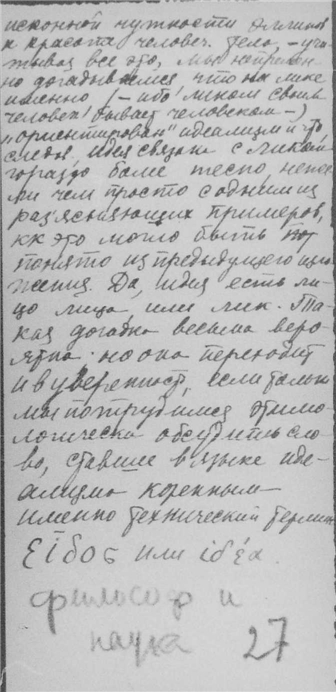 исконной чуткости эллинов
к красота человеч. тела, – учи-
тывая все это, мы
но догадываемся что на лике
именно (– ибо ликом своим
человек бывает человеком –)
„ориентирован" идеализм и что
след., идея связана с ликом
гораздо более тесно, неже-
ли чем просто с одним из
раз'ясняющих примеров,
кк это могло быть
понято из предыдущего изло-
жения. Да, идея есть ли-
цо лица, или лик. Та-
кая догадка весьма веро-
ятна. но она переходит
и в уверенность, если только
мы потрудимся этимо-
логически обсудить сло-
во, ставшее в языке иде-
ализма коренным
именно технический термин
εἶδος или ἰδέα.
философ и
наука 27